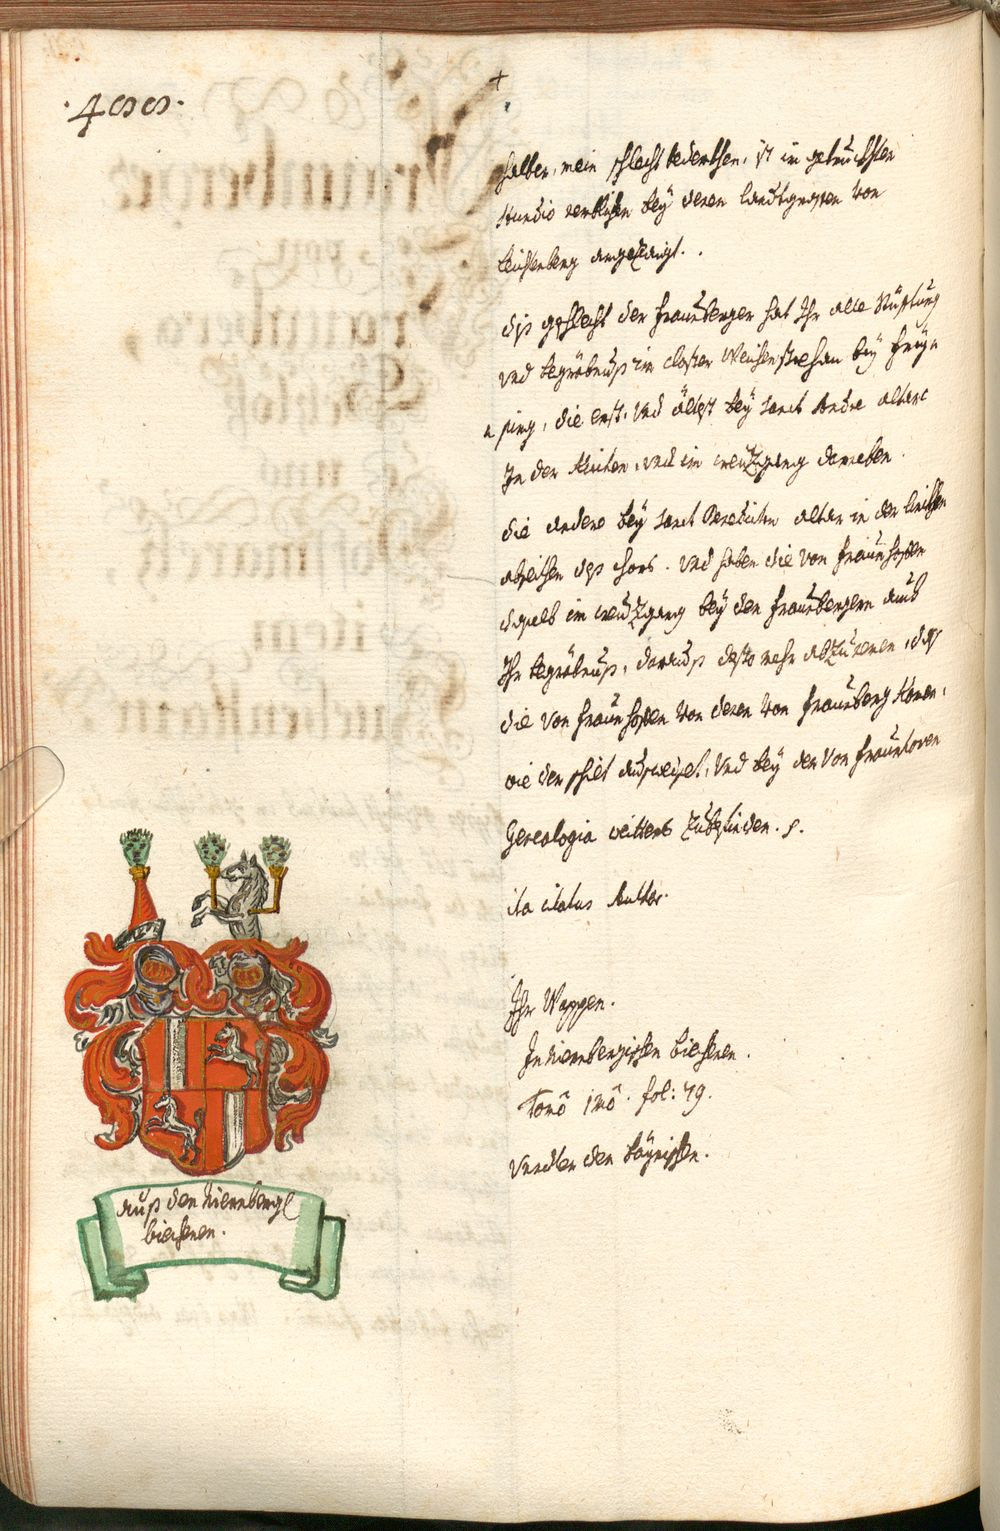 ·400·
halber, mein schlecht bedenkhen, ist in getruckhten
studio verblichen bey denen Landtgraven von
Leuchtenberg angezaigt.
diß geschlecht der Fraunberger hat Ihr alte Stüfftung
vnd begräbnuß im closter Weichenstephan bey Freÿ=
=sing, die erst, vnd ältest bey sanct Andre altare
In der Kürchen, vnd im creützgang darneben.
die andere bey sanct Benedicten altar in der linckhen
abseithen deß chors. vnd haben die von Fraunhofen
daselb im creutzgang bey den Fraunbergern auch
Ihr begräbnuß, darauß desto mehr abzunemen, daß
die von Fraunhofen von denen von Fraunberg kómen,
wie der schilt außweiset, vnd bey den von Fraunhoven
Genealogia weitters zubefinden.
ita citatus Author.
Ihr Wappen.
In Niernbergischen biechern.
Tomô 1mô. fol: 79.
vnder den bäyrischen.
auß den Niernbergl
biechern.